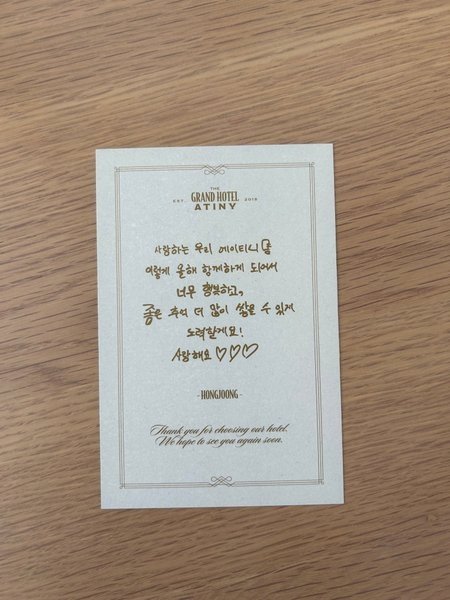 THE
GRAND HOTEL
EST. 2018
ATINY
사랑하는 우리 에이티니
이렇게 올해 함께하게 되어서
너무 행복하고,
좋은 추억 더 많이 쌓을 수 있게
노력할게요!
사랑해요 ♡♡♡
-HONGJOONG-
Thank you for choosing our hotel.
We hope to see you again soon.